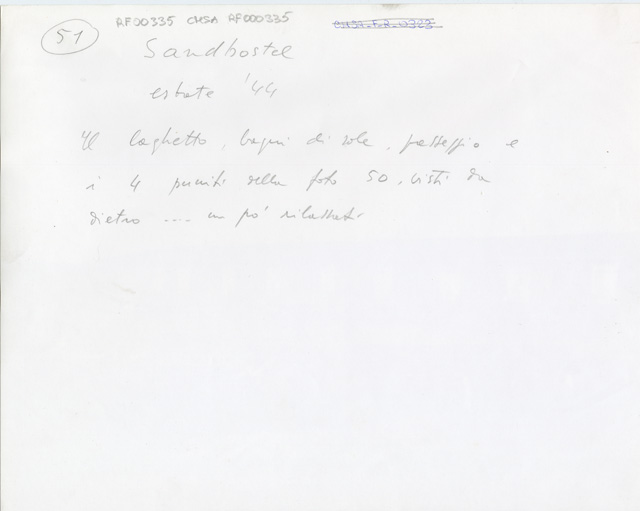 51 RF00335 CMSA RF000335
Sandbostel
estate '44
Il laghetto, bagni di sole, passeggio e
i 4 puniti della foto 50, visti da
dietro .... un po' rilassati